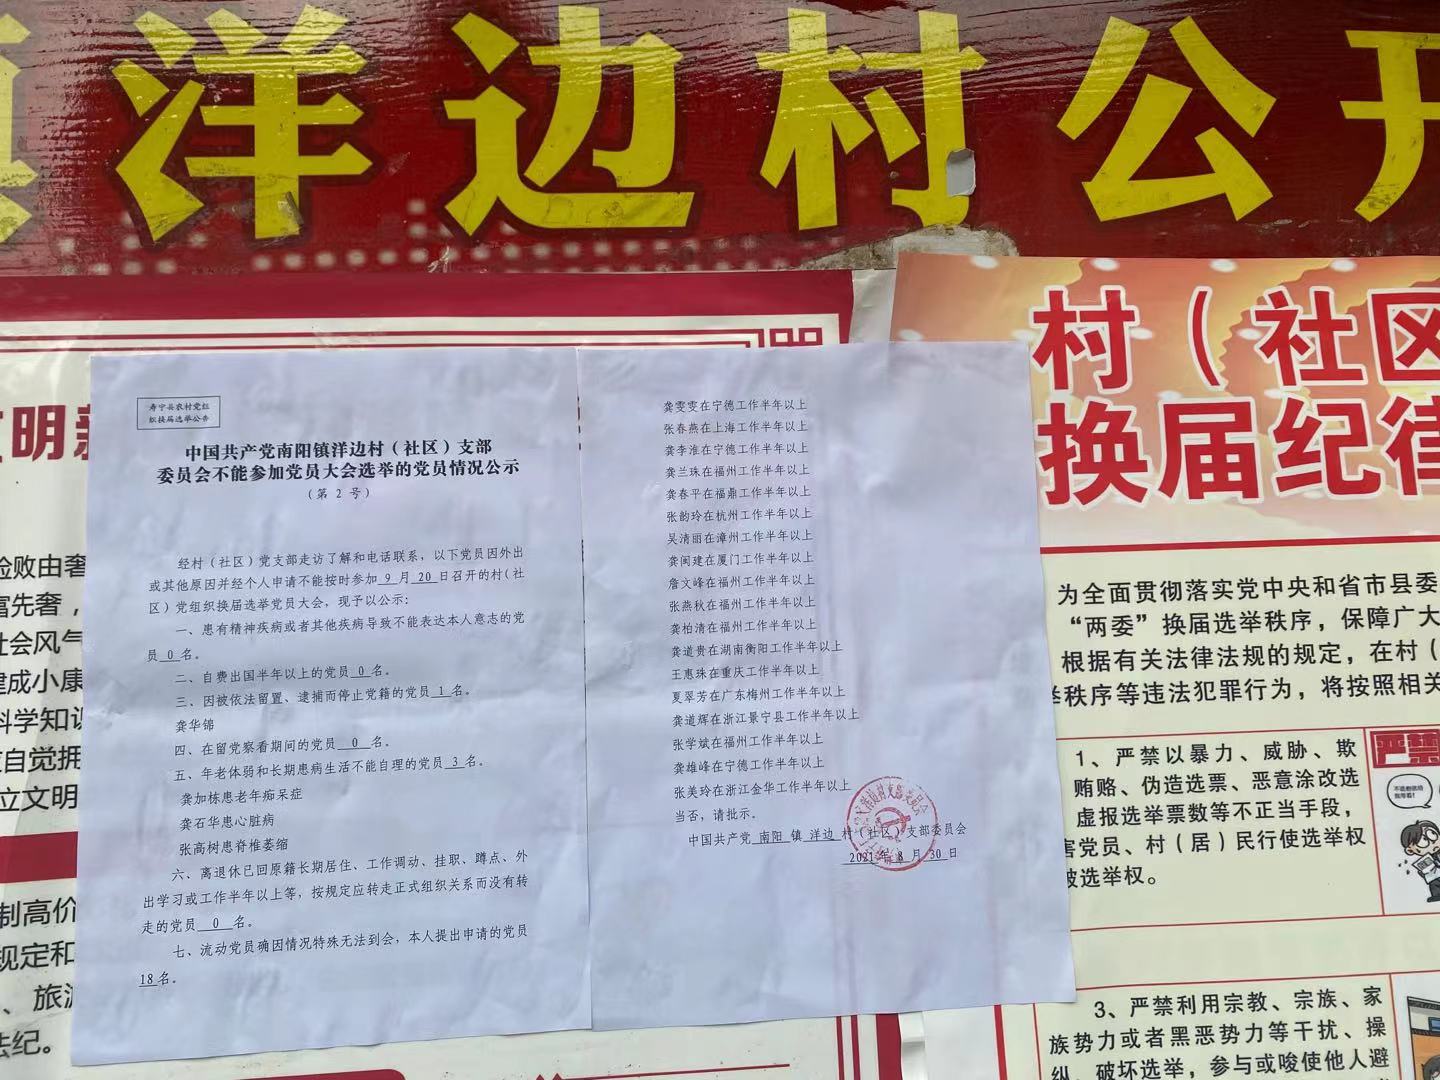 镇洋边村公开
文明新
俭败由奢
富先奢，
社会风气
建成小康
科学知识
自觉拥
立文明
制高价
规定和
、旅游
法纪。
寿宁县农村党组
织换届选举公告
中国共产党南阳镇洋边村（社区）支部
委员会不能参加党员大会选举的党员情况公示
（第 2 号）
经村（社区）党支部走访了解和电话联系，以下党员因外出
或其他原因并经个人申请不能按时参加 9 月 20 日召开的村(社
区）党组织换届选举党员大会，现予以公示：
一、患有精神疾病或者其他疾病导致不能表达本人意志的党
员 0 名。
二、自费出国半年以上的党员 0 名。
三、因被依法留置、逮捕而停止党籍的党员 1 名。
龚华锦
四、在留党察看期间的党员 0 名。
五、年老体弱和长期患病生活不能自理的党员 3 名。
龚加栋患老年痴呆症
龚石华患心脏病
张高树患脊椎萎缩
六、离退休已回原籍长期居住、工作调动、挂职、蹲点、外
出学习或工作半年以上等，按规定应转走正式组织关系而没有转
走的党员 0 名。
七、流动党员确因情况特殊无法到会，本人提出申请的党员
18 名。
龚雯雯在宁德工作半年以上
张春燕在上海工作半年以上
龚李淮在宁德工作半年以上
龚兰珠在福州工作半年以上
龚春平在福鼎工作半年以上
张韵玲在杭州工作半年以上
吴清丽在漳州工作半年以上
龚闽建在厦门工作半年以上
詹文峰在福州工作半年以上
张燕秋在福州工作半年以上
龚柏清在福州工作半年以上
龚道贵在湖南衡阳工作半年以上
王惠珠在重庆工作半年以上
夏翠芳在广东梅州工作半年以上
龚道辉在浙江景宁县工作半年以上
张学斌在福州工作半年以上
龚雄峰在宁德工作半年以上
张美玲在浙江金华工作半年以上
当否，请批示。
中国共产党 南阳 镇 洋边 村（社区）支部委员会
2021 年 8 月 30 日
村（社区
换届纪律
为全面贯彻落实党中央和省市县委
“两委”换届选举秩序，保障广大
根据有关法律法规的规定，在村（
举秩序等违法犯罪行为，将按照相关
1、严禁以暴力、威胁、欺
贿赂、伪造选票、恶意涂改选
虚报选举票数等不正当手段，
害党员、村（居）民行使选举权
被选举权。
严禁
3、严禁利用宗教、宗族、家
族势力或者黑恶势力等干扰、操
纵、破坏选举，参与或唆使他人避